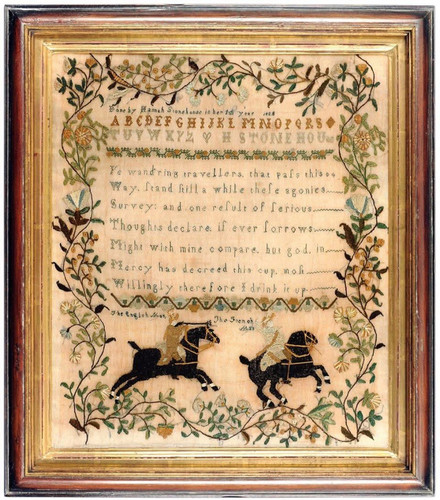 Done by Hannah Stonehouse in her year
ABCDEFGHIJKLMNOPQRS
TUVWXYZ & H STONEHOUSE
Ye wandring travellers, that pass this
Way, stand still a while these agonies
Survey; and one result of serious
Thoughts declare, if ever sorrows
Might with mine compare, but god, in
Mercy has decreed this cup, most
Willingly therefore I drink it up
The English Man The French Man